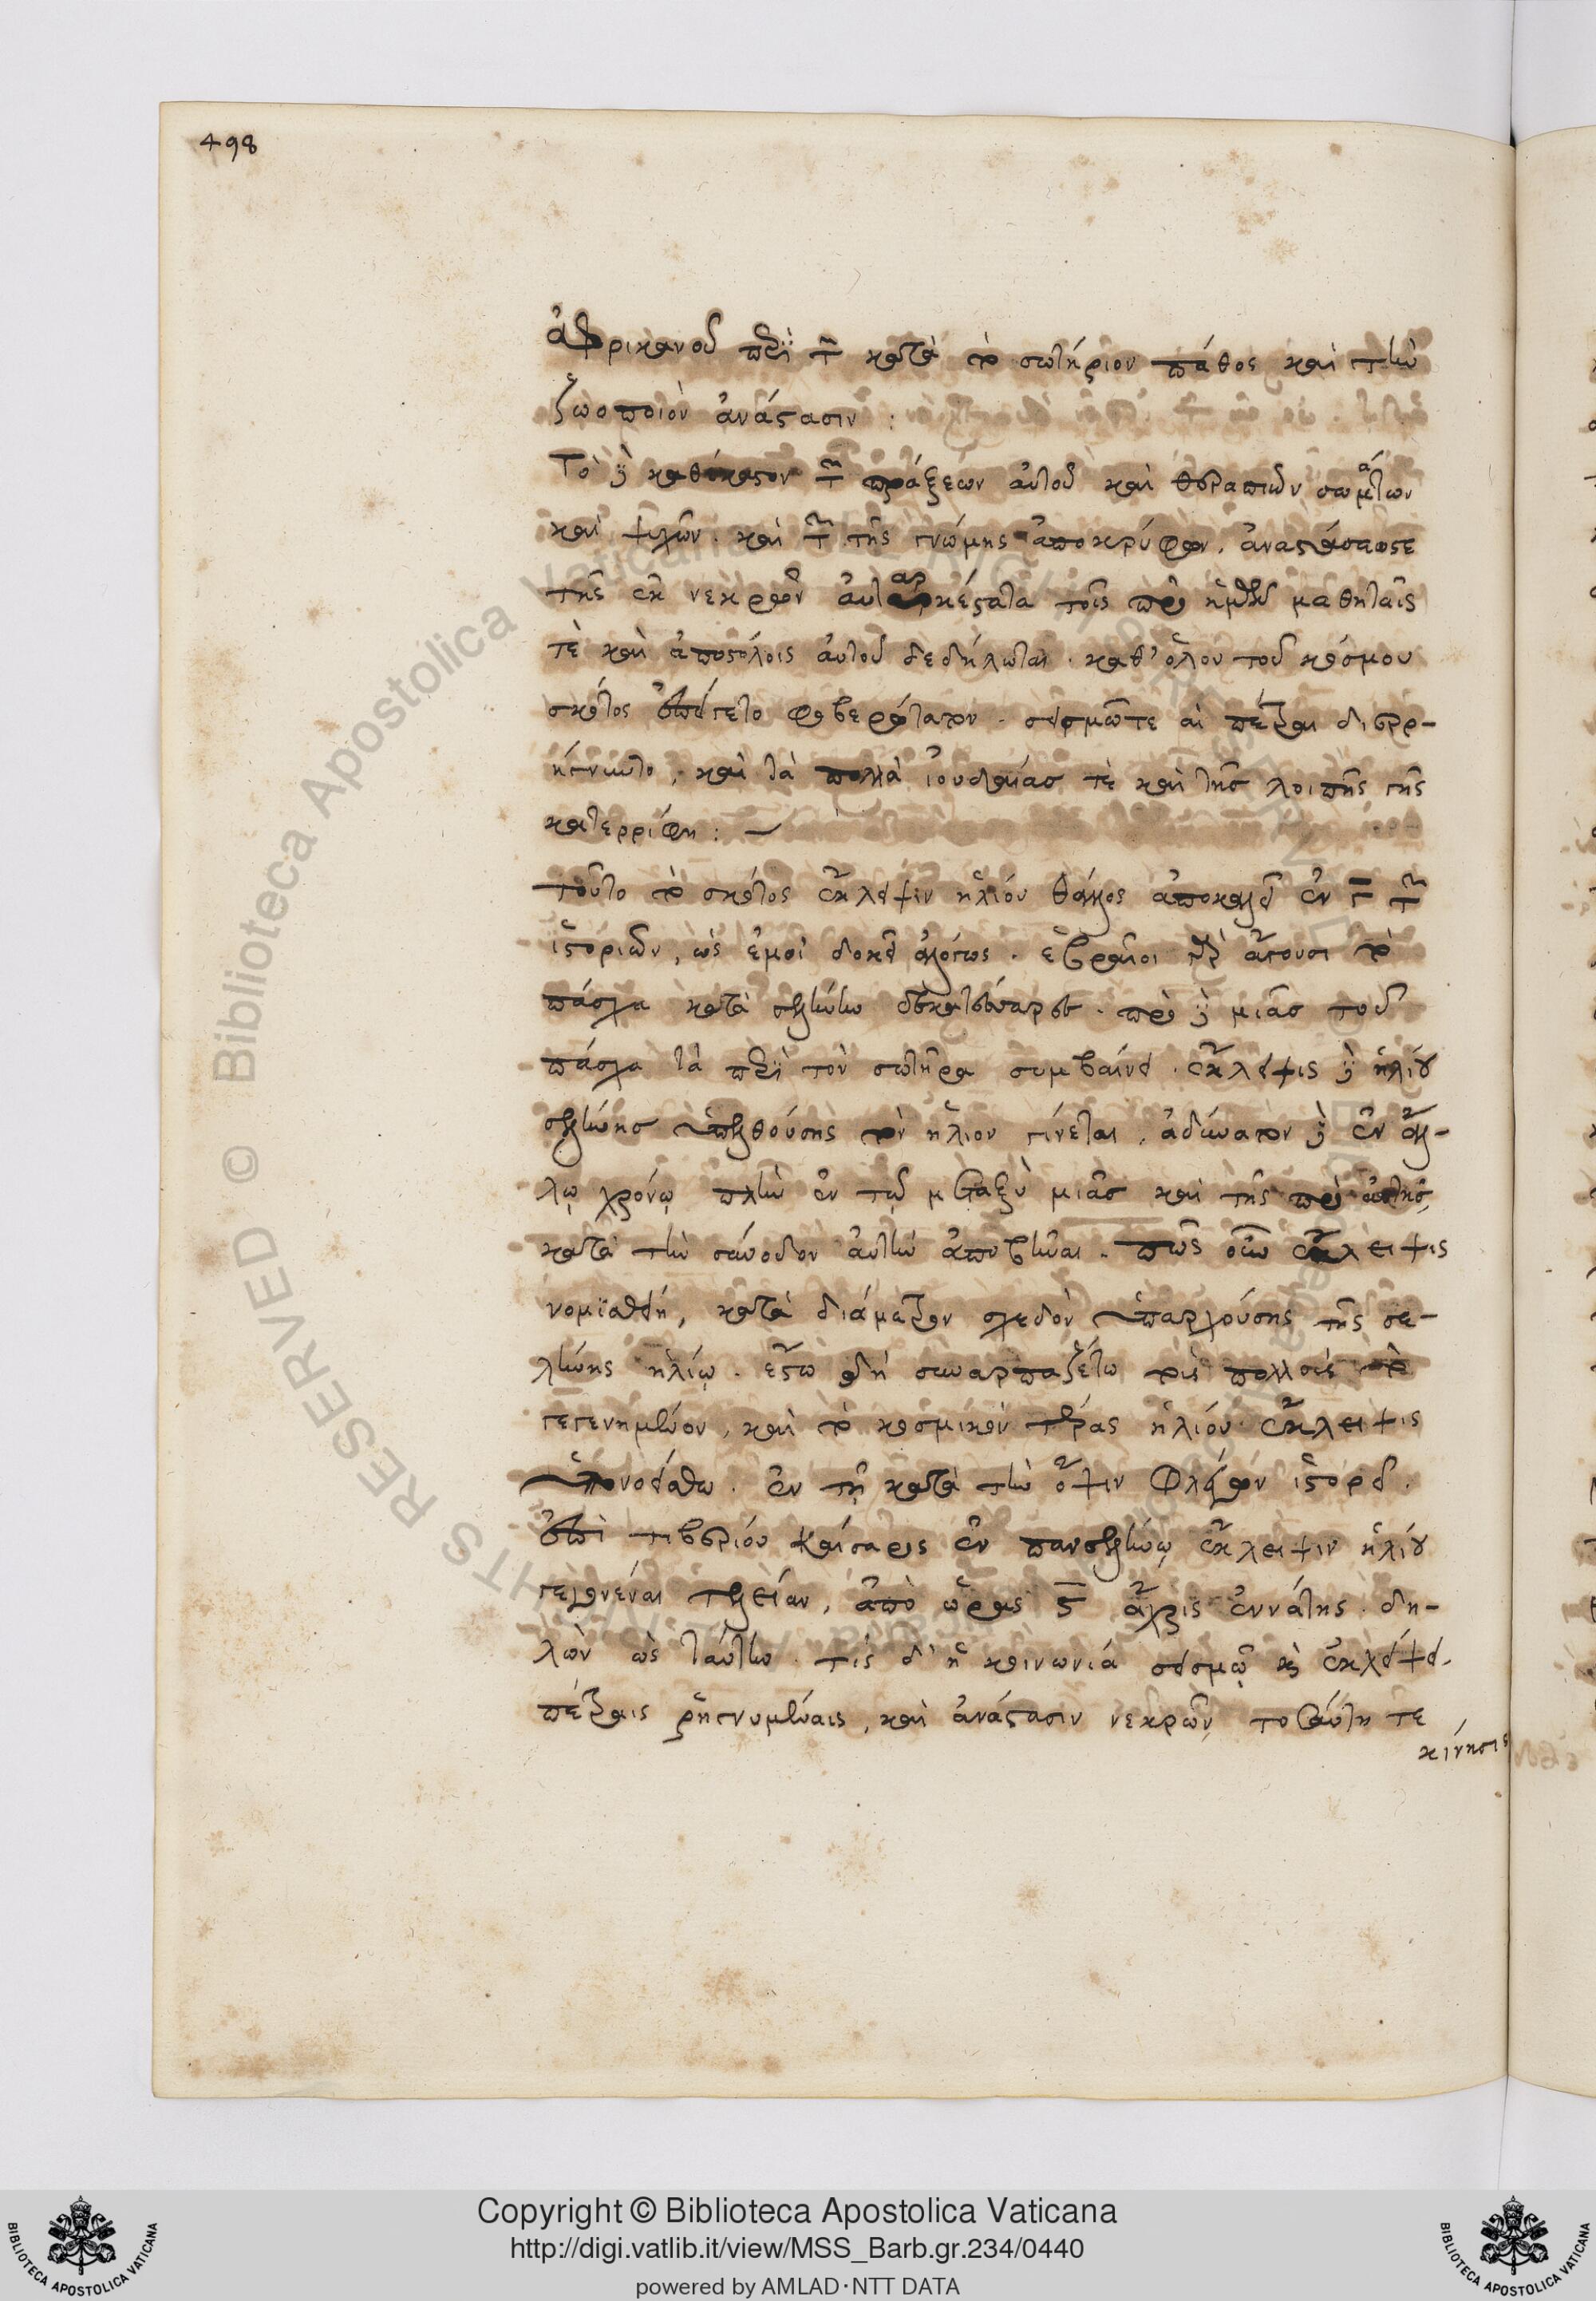 498
ἀφρικανοῦ περὶ τῶν κατὰ τὸ σωτήριον πάθος καὶ τὴν
ζωοποιὸν ἀνάστασιν :
Τὸ δὲ καθέκαστον τῶν πράξεων αὐτοῦ καὶ θεραπιῶν σωμάτων
καὶ ψυχῶν. καὶ τῶν τῆς γνώμης ἀποκρύφων, ἀναστάσεώστε
τῆς ἐκ νεκρῶν αὐταρκέστατα τοῖς πρὸ ἡμῶν μαθηταῖς
τὲ καὶ ἀποστόλοις αὐτοῦ δεδήλωται. καθ' ὅλου τοῦ κόσμου
σκότος ἐπήγετο φοβερώτατον. σεισμῶτε αἱ πέτραι διερρ-
ήγνυντο, καὶ τὰ πολλὰ ἰουδαίας τὲ καὶ τῆς λοιπῆς γῆς
κατερρίφη : —
τοῦτο τὸ σκότος ἔκλειψιν ἡλίου θάλλος ἀποκαλεῖ ἐν γ τῶν
ἱστοριῶν, ὡς ἐμοὶ δοκεῖ ἀλόγως. ἑβραῖοι γὰρ ἄγουσι τὸ
πάσχα κατὰ σελήνην δεκάτην. πρὸ δὲ μιᾶς τοῦ
πάσχα τὰ περὶ τὸν σωτῆρα συμβαίνει. ἔκλειψις δὲ ἡλίου
σελήνης ὑπελθούσης τὸν ἥλιον γίνεται. ἀδύνατον δὲ ἐν ἄλ-
λῳ χρόνῳ πλὴν ἐν τῷ μεταξὺ μιᾶς καὶ τῆς πρὸ αὐτῆς,
κατὰ τὴν σύνοδον αὐτὴν ἀποβῆναι. πῶς οὖν ἔκλειψις
νομισθῇ, κατὰ διάμετρον σχεδὸν ὑπαρχούσης τῆς σε-
λήνης ἡλίῳ. ἔστω δὴ συναρπαζέτω τοὺς πολλοὺς τὸ
γεγενημένον, καὶ τὸ κοσμικὸν τέρας ἡλίου ἔκλειψις
ὑπονοείσθω. ἐν τῇ κατὰ τὴν ὄψιν Φλέγων ἱστορεῖ.
ἐπὶ τιβερίου καίσαρος ἐν πανσελήνῳ ἔκλειψιν ἡλίου
γεγονέναι τελείαν, ἀπὸ ὥρας ς ἄχρις ἐννάτης. δη-
λῶν ὡς ταύτην. τίς δ' ἡ κοινωνία σεισμῷ καὶ ἐκλείψει,
πέτραις ῥηγνυμέναις, καὶ ἀνάστασιν νεκρῶν τοσαύτη τε
κίνησις
Copyright © Biblioteca Apostolica Vaticana
http://digi.vatlib.it/view/MSS_Barb.gr.234/0440
powered by AMLAD·NTT DATA